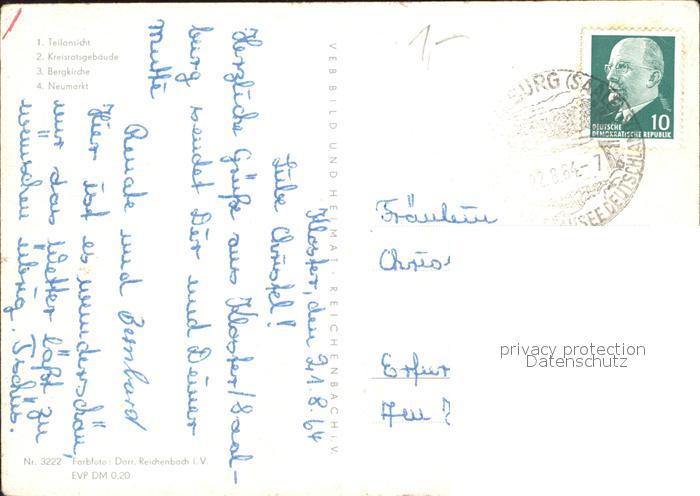 1. Teilansicht
2. Kreisratsgebäude
3. Bergkirche
4. Neumarkt
Kloster, den 21.8.64
Liebe Christel!
Herzliche Grüße aus Kloster/Saal-
burg sendet Dir und Deiner
Mutti
Renate und Bernhard
Hier ist es wunderschön,
nur das Wetter läßt zu
wünschen übrig. Tschüs.
Nr. 3222 Farbfoto: Darr, Reichenbach i. V.
EVP DM 0,20
VEB BILD UND HEIMAT · REICHENBACH i. V.
1,-
BURG (SAALE
22.8.64-7
DEUTSCHLAN
DEUTSCHE
DEMOKRATISCHE REPUBLIK
10
Fräulein
Chris
Erfur
privacy protection
Datenschutz